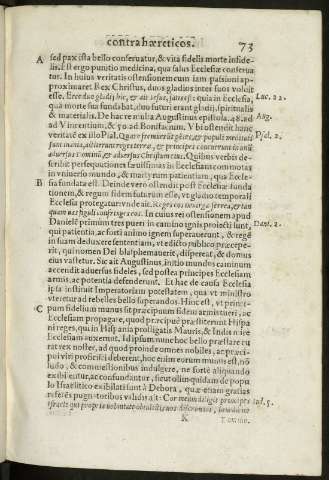 contra hæreticos. 73
A sed pax ista bello conseruatur, & vita fidelis morte infide-
lis. Est ergo punitio medicina, qua salus Ecclesiæ conserua
tur. In huius veritatis ostensionem cum iam passioni ap-
proximaret Rex Christus, duos gladios inter suos voluit
esse. Ecce duo gladij hic, & ait ipsus, satis est: quia in Ecclesia, Luc. 22.
qua morte sua fundabat, duo futuri erant gladij, spiritualis
& materialis. De hac re multa Augustinus epistola. 48. ad Aug.
ad Vincentium, & 50. ad Bonifacium. Vbi ostendit hanc
veritatē ex illo Psal. Quare fremuerūt gētes, & populi meditati Psal. 2.
sunt inania, astiterunt reges terræ, & principes conuenerunt in vnū
aduersus Dominū, & aduersus Christum eius. Quibus verbis de-
scribit persequutiones sæuissimas in Ecclesiam commotas
in vniuerso mundo, & martyrum patientiam, qua Eccle-
B sia fundata est. Deinde vero ostendit post Ecclesiæ funda
tionem, & regum fidem futurum esse, vt gladio temporali
Ecclesia protegatur: vnde ait. Reges eos in virga ferrea, & tan
quam vas figuli confringes eos. In cuius rei ostensionem apud
Danielē primùm tres pueri in camino ignis proiecti sunt, Dani. 2.
qui patientia, ac forti animo ignem superauerunt, & regē
in suam deduxere sententiam, vt edicto publico præcepe-
rit, qui nomen Dei blasphemauerit, dispereat, & domus
eius vastetur. Sic ait Augustinus, initio mundus caminum
accendit aduersus fideles, sed postea principes Ecclesiam
armis, ac potentia defenderunt. Et hac de causa Ecclesia
ipsa instituit Imperatoriam potestatem, qua vt ministro
vteretur ad rebelles bello superandos. Hinc est, vt princi-
C pum fidelium munus sit præcipuum fidem armis tueri, ac
Ecclesiam propagare, quod præcipuè præstiterunt Hispa
ni reges, qui in Hispania profligatis Mauris, & Indis mire
Ecclesiam auxerunt. Id ipsum nunc hoc bello præstare cu
rat rex noster, ad quod proinde omnes nobiles, ac præci-
pui viri proficisci deberent, hoc enim eorum munus est, nō
ludo, & commestionibus indulgere, ne forte aliquando
exibilentur, ac confundantur, sicut olim quidam de popu
lo Israelitico exibilati sunt à Debora, quæ etiam gratias
referēs pugnatoribus validis ait: Cor meum diligit principes Iud. 5.
Israel: qui propria voluntate obtulistis vos discrimini, benedicite
K Domino.